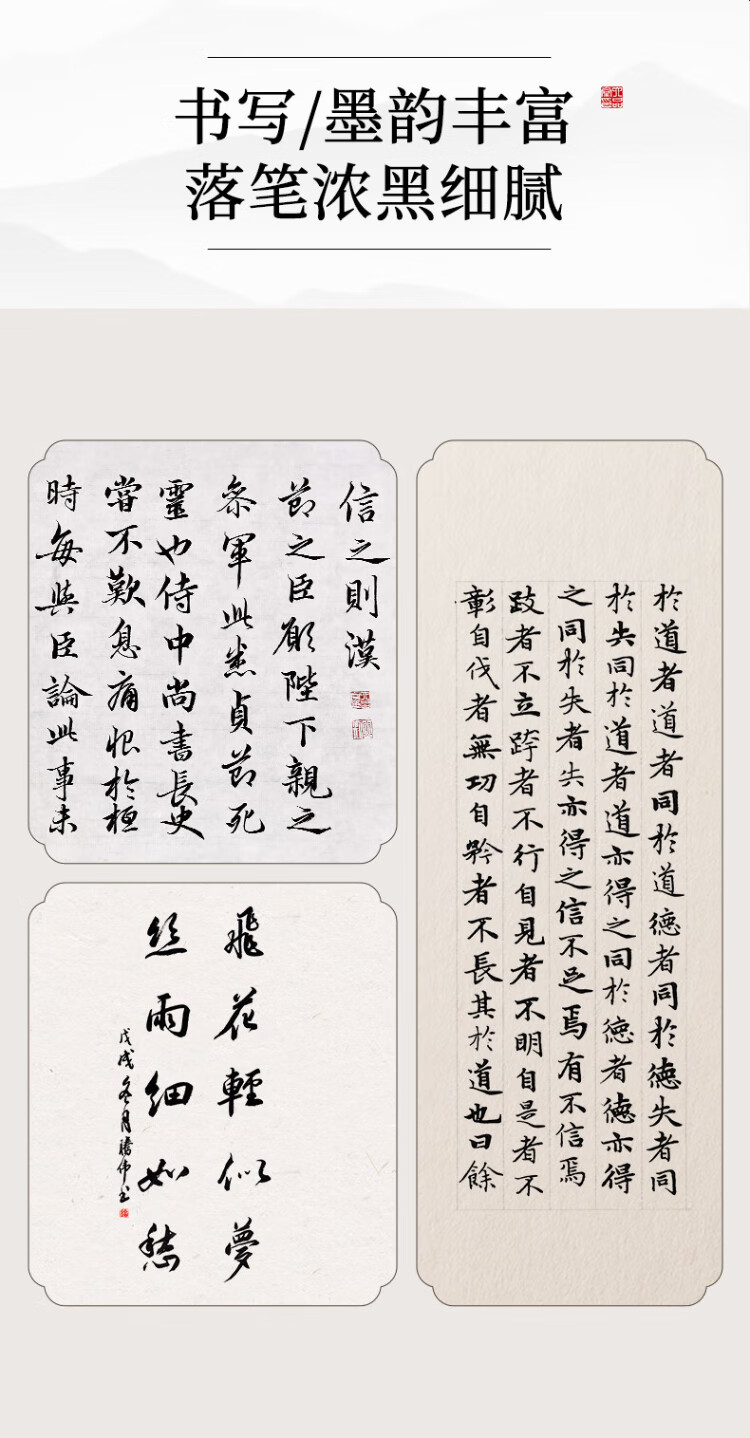 书写/墨韵丰富
落笔浓黑细腻
時每與臣論此事未
嘗不歎息痛恨於桓
靈也侍中尚書長史
叅軍此悉貞莭死
莭之臣願陛下親之
信之則漢
飛花輕似夢
絲雨細如愁
戊戌冬月
於道者道者同於道德者同於德失者同
於失同於道者道亦得之同於德者德亦得
之同於失者失亦得之信不足焉有不信焉
跂者不立跨者不行自見者不明自是者不
彰自伐者無功自矜者不長其於道也曰餘